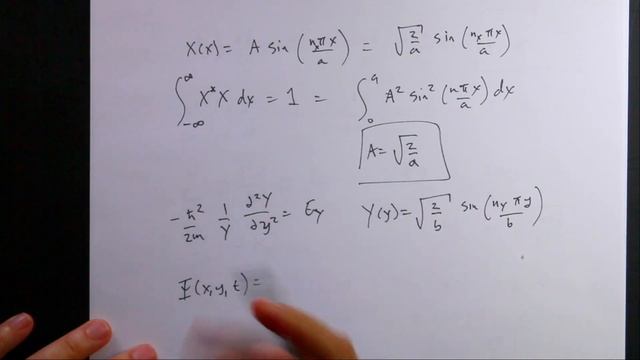 X(x) = A sin(n_x π x / a) = √(2/a) sin(n_x π x / a)
∫_{-∞}^{∞} X* X dx = 1 = ∫_0^a A² sin²(nπx / a) dx
A = √(2/a)
-ħ²/2m 1/Y ∂²Y/∂y² = E_y    Y(y) = √(2/b) sin(n_y π y / b)
Ψ(x,y,t) =